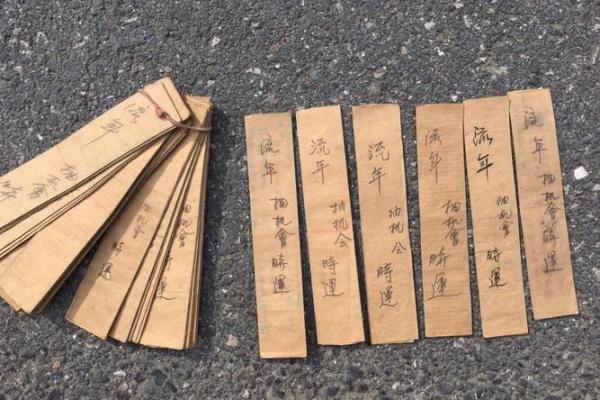 流年
抽机會
時運
流年 抽机會 時運
流年 抽机会 時運
流年 抽机会 時運
流年 抽机會 時運
流年 抽机會 時運
流年 抽机會 時運